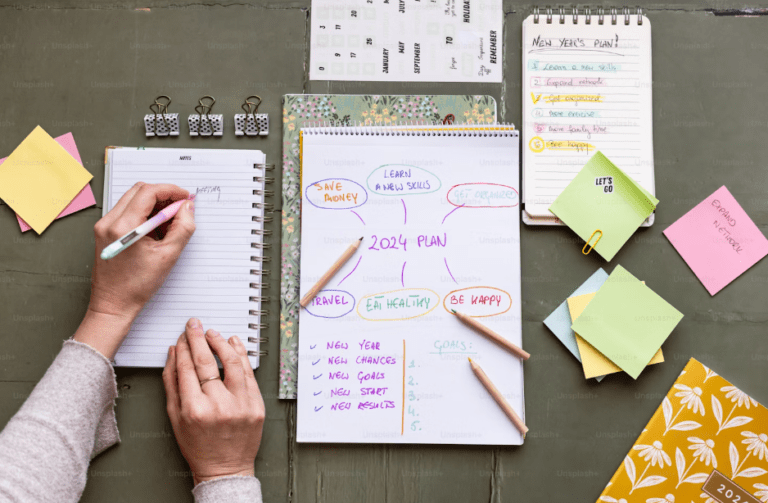 JANUARY
MAY
SEPTEMBER
JULY
TO
REMEMBER
NOTES
SAVE
MONEY
LEARN
A NEW SKILLS
GET ORGANIZED
2024 PLAN
TRAVEL
EAT HEALTHY
BE HAPPY
NEW YEAR
NEW CHANCES
NEW GOALS
NEW START
NEW RESULTS
GOALS:
1.
2.
3.
4.
5.
NEW YEAR'S PLAN!
Learn a new skills
Expand network
Get organized
Save family time
Be happy
LET'S
GO
EXPAND
NETWORK
2024
Unsplash+